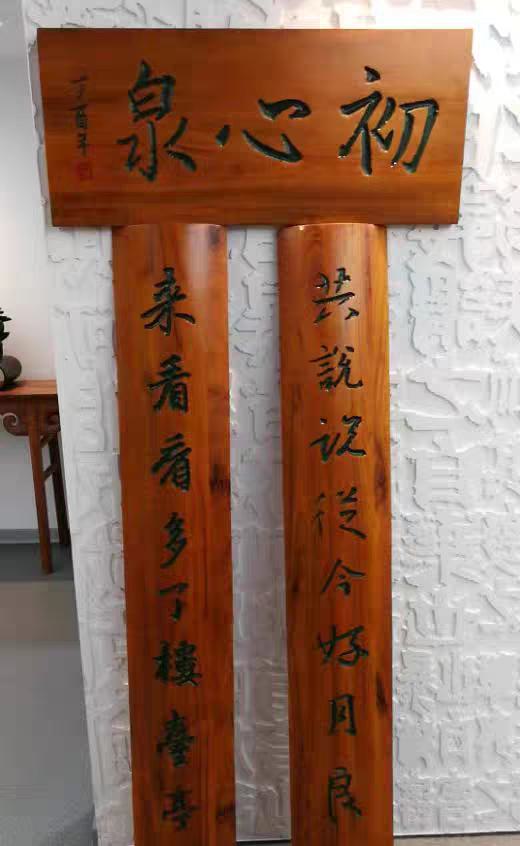 初心泉
丁酉年
共說說從今好月良
来看看多了樓臺亭